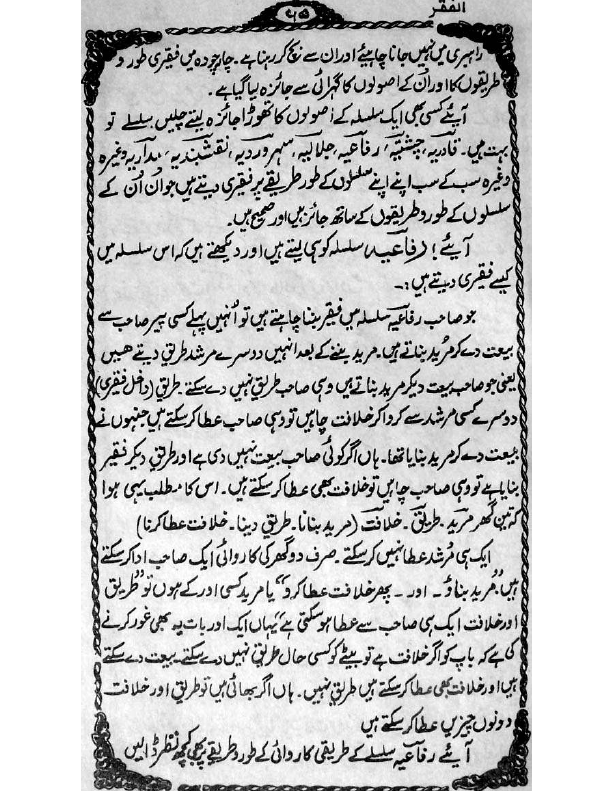 الفقر
۶۵
راہبری میں نہیں جانا چاہیئے اور ان سے بچ کر رہنا ہے۔ چار چودہ میں فقیری طور و
طریقوں کا اور اُن کے اصولوں کا گہرائی سے جائزہ لیا گیا ہے۔
آیئے کسی بھی ایک سلسلہ کے اُصولوں کا تھوڑا جائزہ لیتے چلیں سلسلے تو
بہت ہیں۔ قادریہ، چشتیہ، رفاعیہ، جلالیہ، سہروردیہ، نقشبندیہ، مداریہ وغیرہ
وغیرہ سب کے سب اپنے اپنے سلسلوں کے طور طریقے پر فقیری دیتے ہیں جو اُن اُن کے
سلسلوں کے طور و طریقوں کے ساتھ جائز ہیں اور صحیح ہیں۔
آیئے! رفاعیہ سلسلہ کو ہی لیتے ہیں اور دیکھتے ہیں کہ اس سلسلہ میں
کیسے فقیری دیتے ہیں :۔
جو صاحب رفاعیہ سلسلہ میں فقیر بننا چاہتے ہیں تو اُنہیں پہلے کسی پیر صاحب سے
بیعت دے کر مُرید بناتے ہیں۔ مرید بننے کے بعد انہیں دوسرے مرشد طریق دیتے ھیں
یعنی جو صاحب بیعت دیکر مرید بناتے ہیں وہی صاحب طریق نہیں دے سکتے۔ طریق (داخل فقیری)
دوسرے کسی مرشد سے کروا کر خلافت چاہیں تو وہی صاحب عطا کر سکتے ہیں جنہوں نے
بیعت دے کر مرید بنایا تھا۔ ہاں اگر کوئی صاحب بیعت نہیں دی ہے اور طریق دیکر فقیر
بنایا ہے تو وہی صاحب چاہیں تو خلافت بھی عطا کر سکتے ہیں۔ اس کا مطلب یہی ہوا
کہ تین گھر مرید۔ طریق۔ خلافت (مرید بنانا۔ طریق دینا۔ خلافت عطا کرنا)
ایک ہی مُرشد عطا نہیں کر سکتے۔ صرف دو گھر کی کاروائی ایک صاحب ادا کر سکتے
ہیں۔ "مرید بناؤ۔ اور ۔۔ پھر خلافت عطا کرو" یا مرید کسی اور کے ہوں تو "طریق
اور خلافت ایک ہی صاحب سے عطا ہو سکتی ہے" یہاں ایک اور بات یہ بھی غور کرنے
کی ہے کہ باپ کو اگر خلافت ہے تو بیٹے کو کسی حال طریق نہیں دے سکتے۔ بیعت دے سکتے
ہیں اور خلافت بھی عطا کر سکتے ہیں طریق نہیں۔ ہاں اگر بھائی ہیں تو طریق اور خلافت
دونوں چیزیں عطا کر سکتے ہیں
آیئے رفاعیہ سلسلے کے طریقی کاروائی کے طور و طریقے پر بھی کچھ نظر ڈالیں